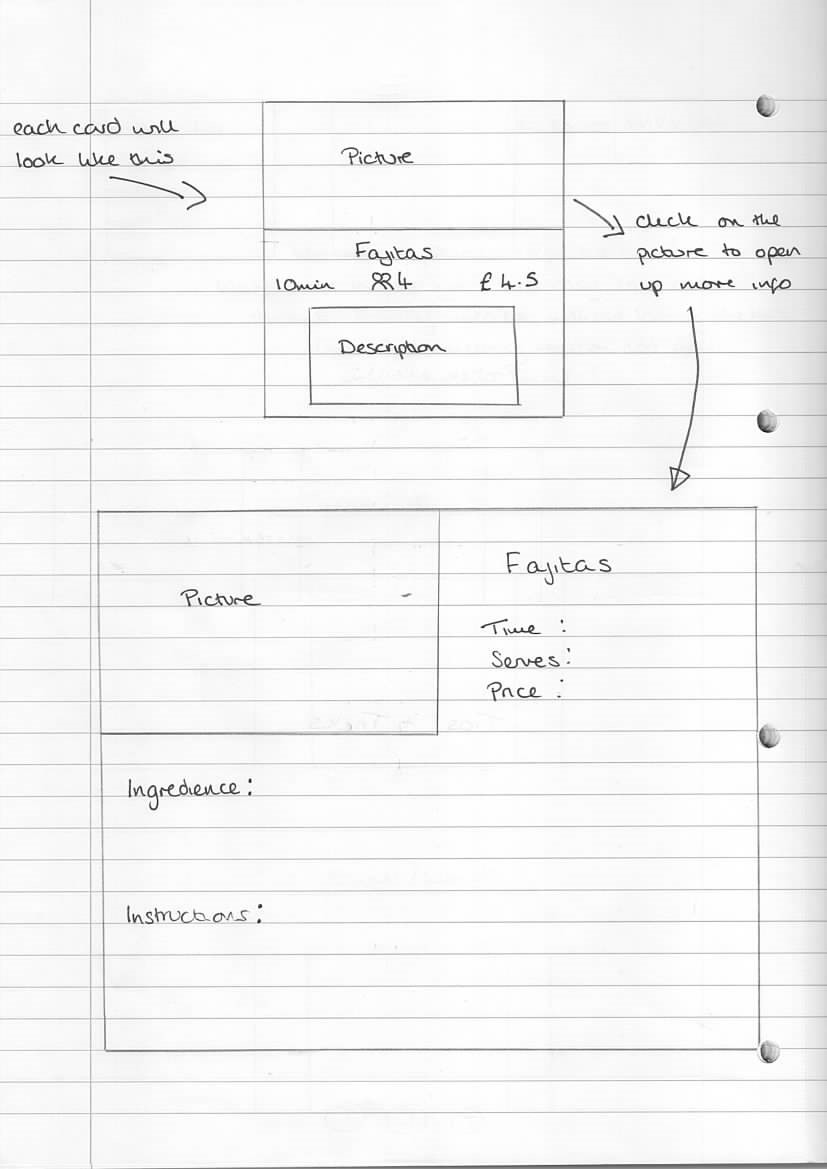 each card will
look like this
Picture
Fajitas
10min 4 £4.5
Description
click on the
picture to open
up more info
Picture
Fajitas
Time :
Serves:
Price :
Ingredience:
Instructions: